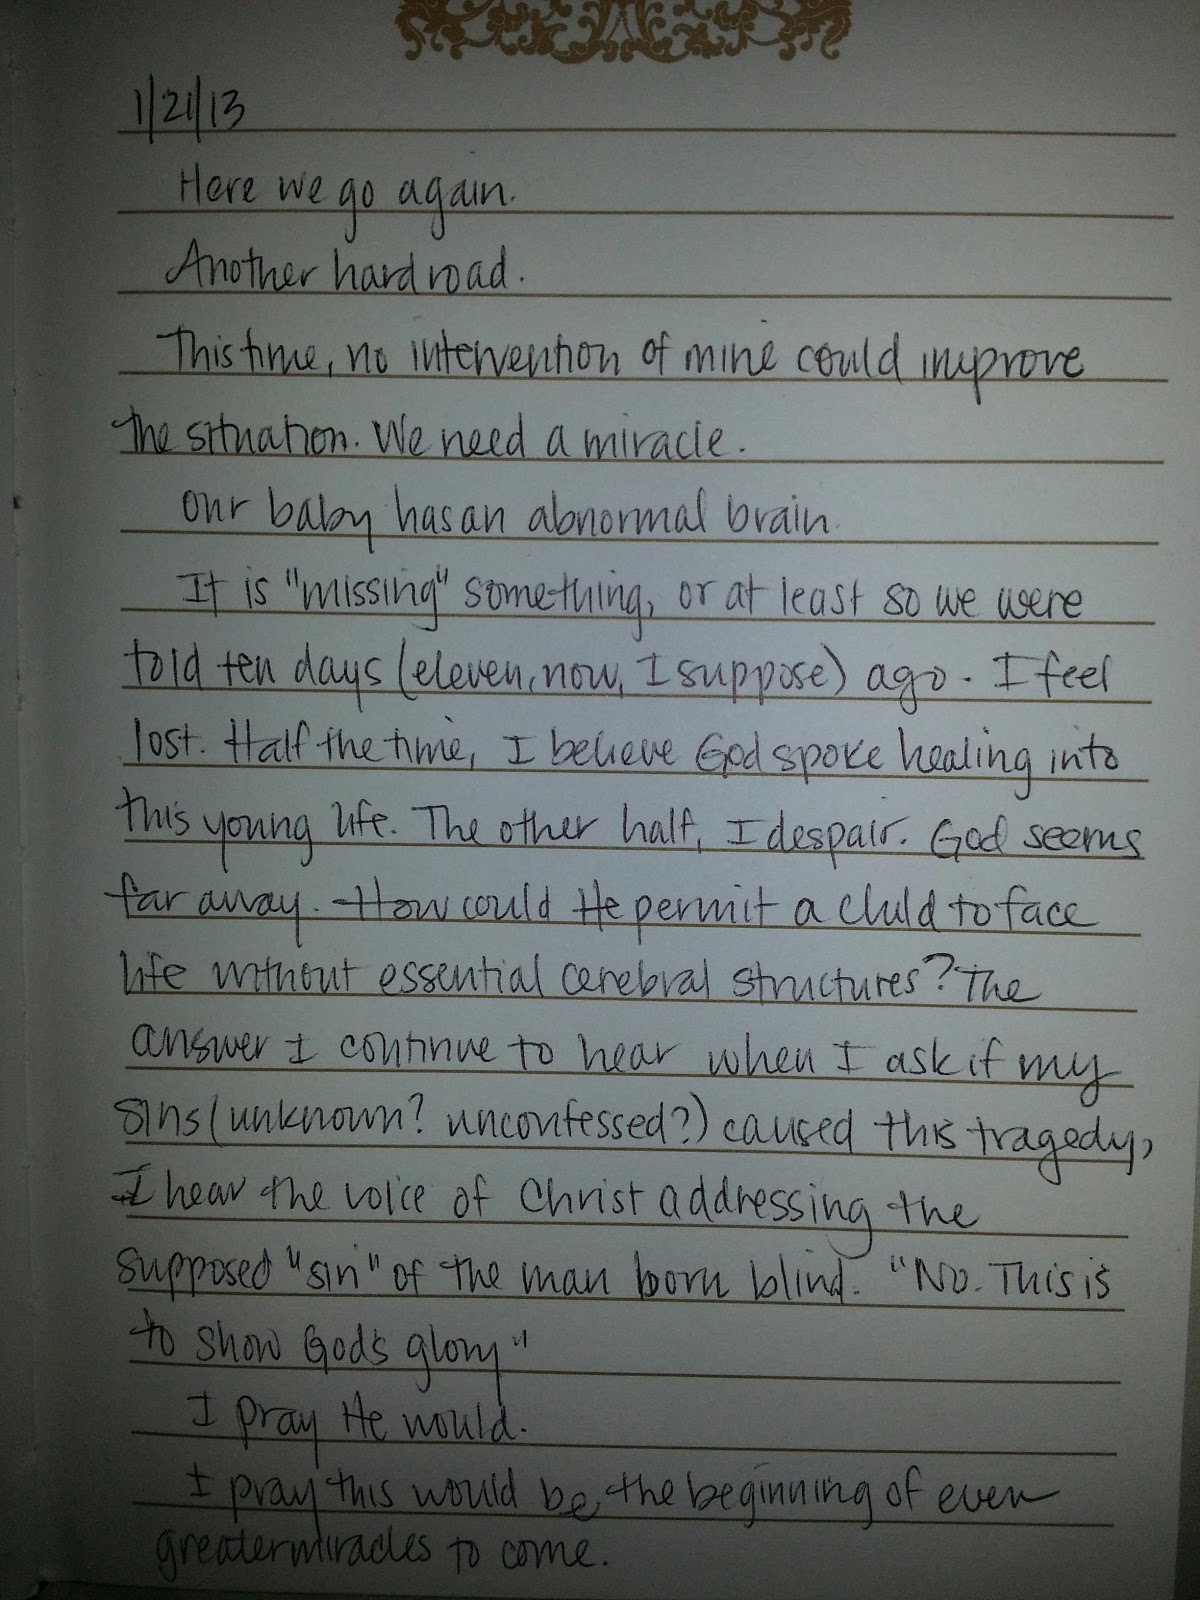 1/21/13
Here we go again.
Another hard road.
This time, no intervention of mine could improve
the situation. We need a miracle.
Our baby has an abnormal brain.
It is "missing" something, or at least so we were
told ten days (eleven, now, I suppose) ago. I feel
lost. Half the time, I believe God spoke healing into
this young life. The other half, I despair. God seems
far away. How could He permit a child to face
life without essential cerebral structures? The
answer I continue to hear when I ask if my
sins (unknown? unconfessed?) caused this tragedy,
I hear the voice of Christ addressing the
supposed "sin" of the man born blind. "No. This is
to show God's glory"
I pray He would.
I pray this would be the beginning of even
greater miracles to come.